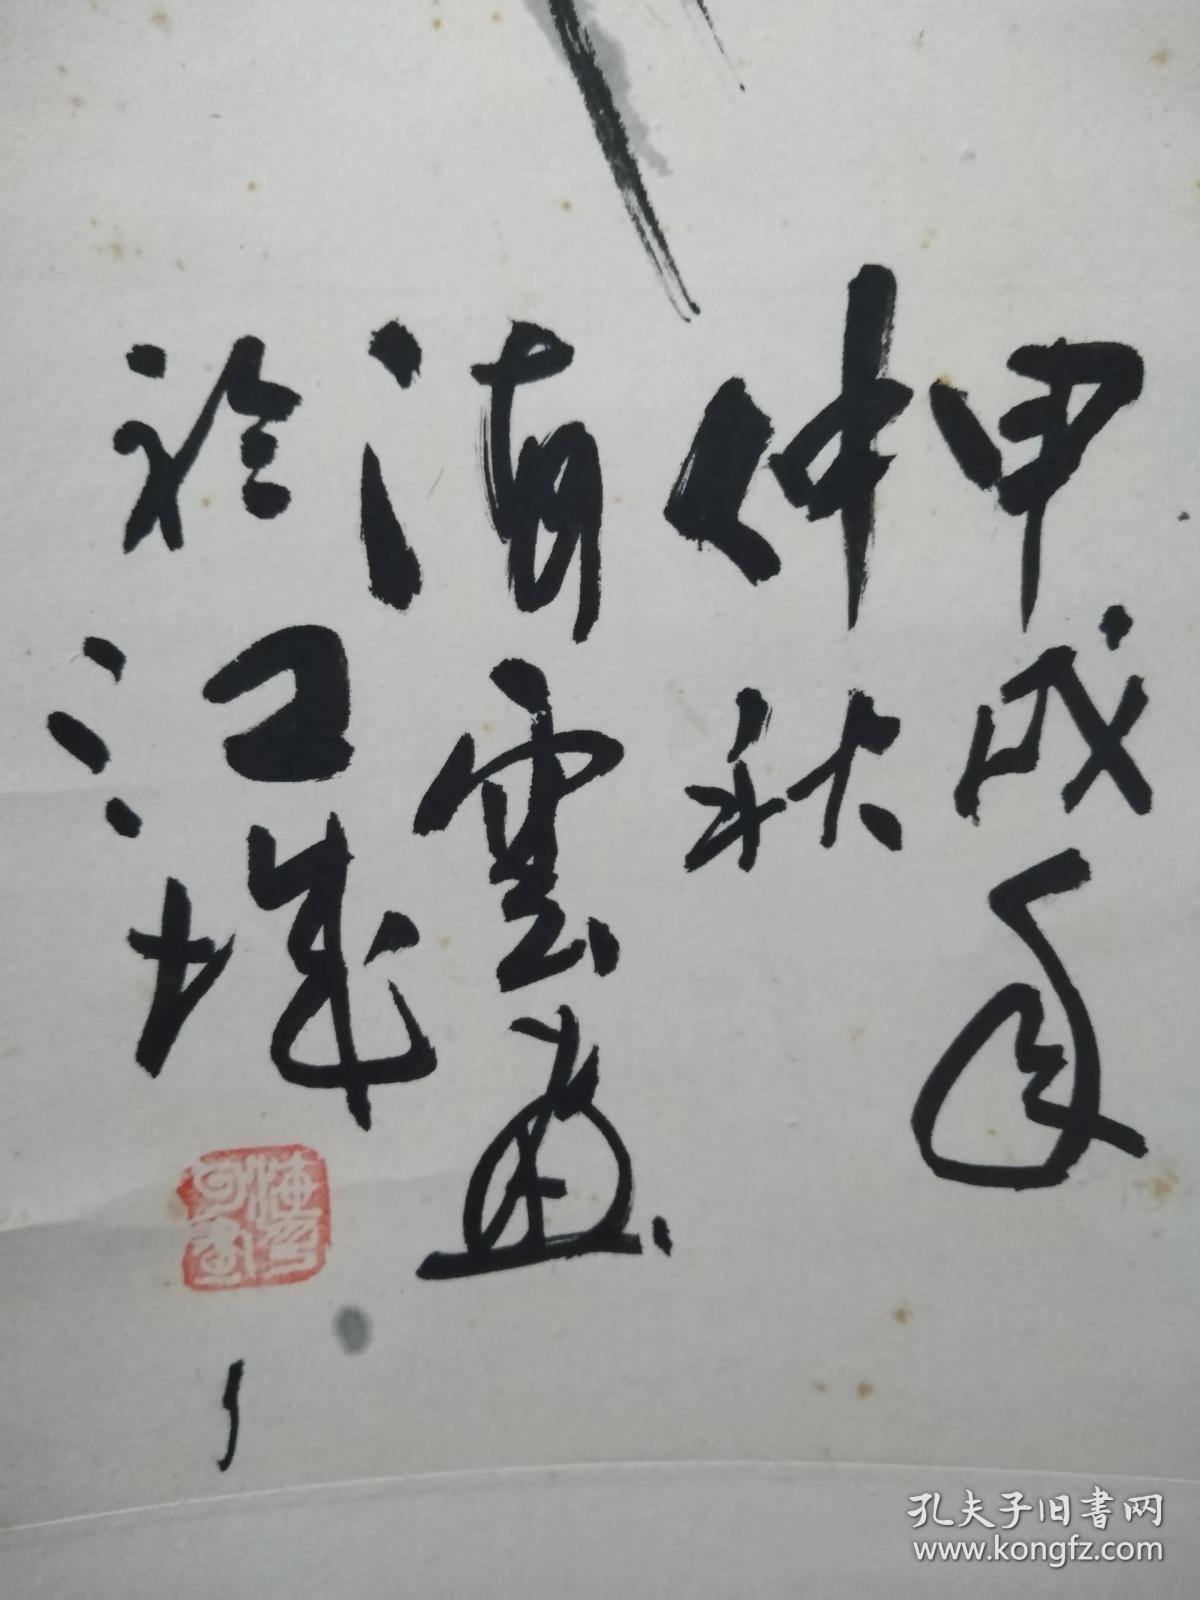 甲戌年
仲秋
海雲畫
於江城
孔夫子旧书网
www.kongfz.com